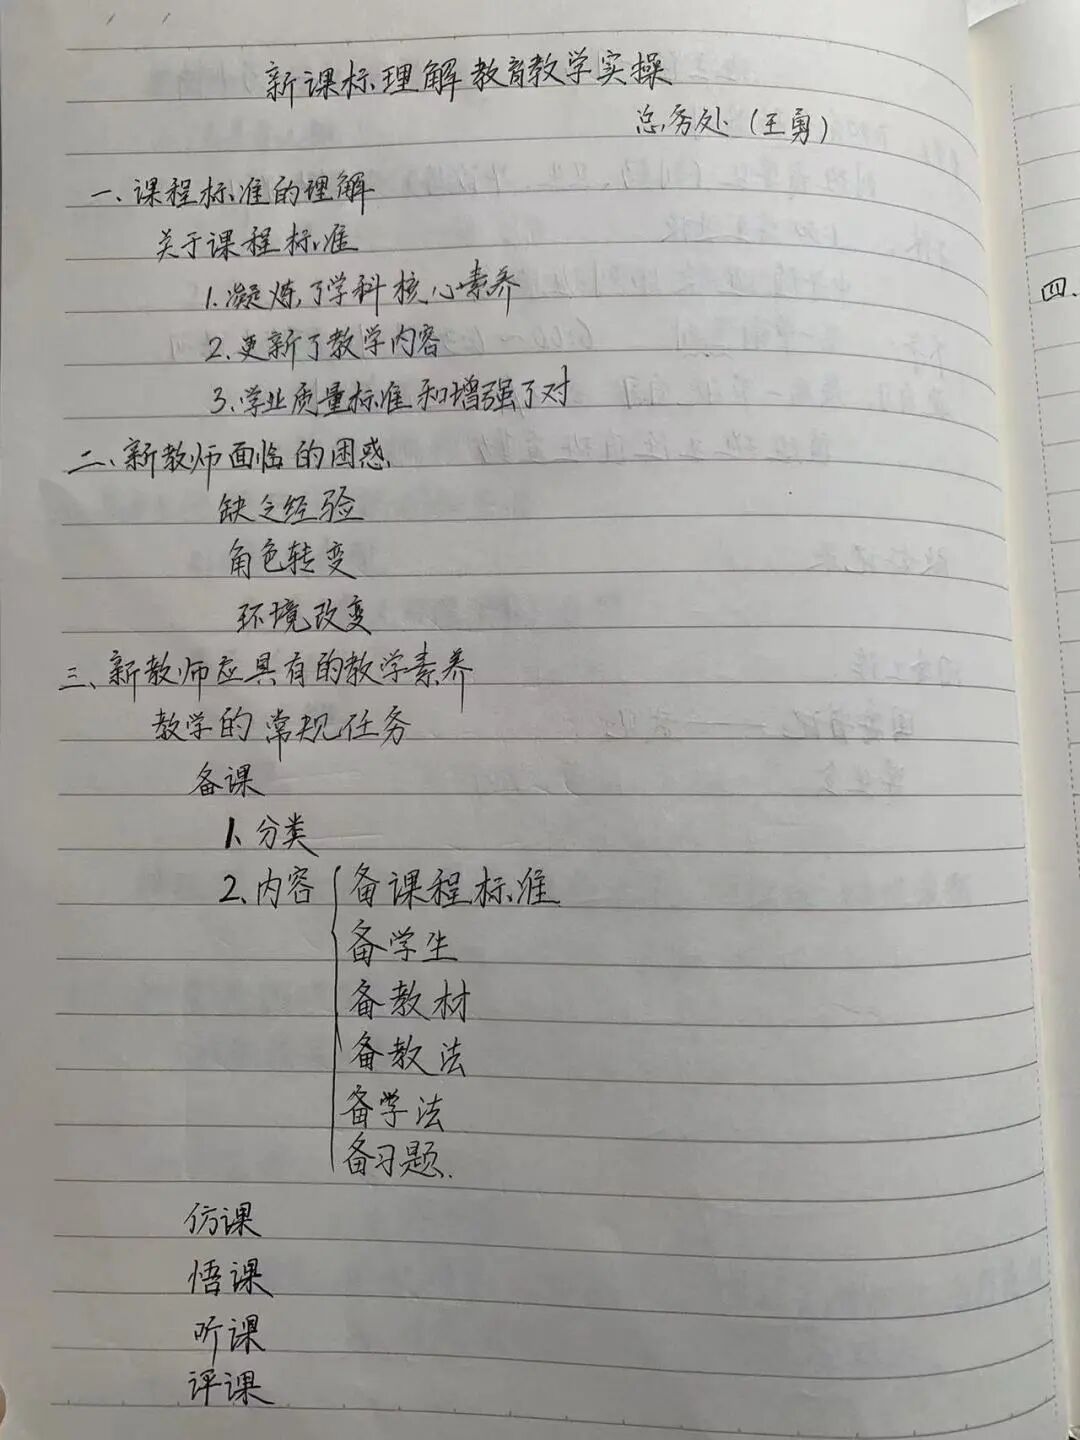 新课标理解教育教学实操
总务处（王勇）
一、课程标准的理解
关于课程标准
1.凝炼了学科核心素养
2.更新了教学内容
3.学业质量标准和增强了对
二、新教师面临的困惑
缺乏经验
角色转变
环境改变
三、新教师应具有的教学素养
教学的常规任务
备课
1、分类
2、内容
备课程标准
备学生
备教材
备教法
备学法
备习题
仿课
悟课
听课
评课
四、